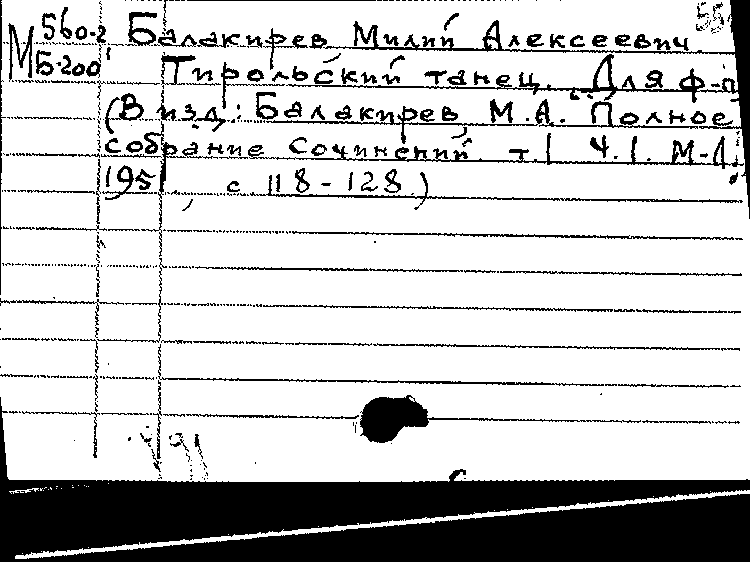 М 560-2 Балакирев Милий Алексеевич.
Б-200 Тирольский танец. Для ф-п
(В изд.: Балакирев, М.А. Полное
собрание сочинений. т.1 ч.1. М-Л.,
1951, с. 118-128.)